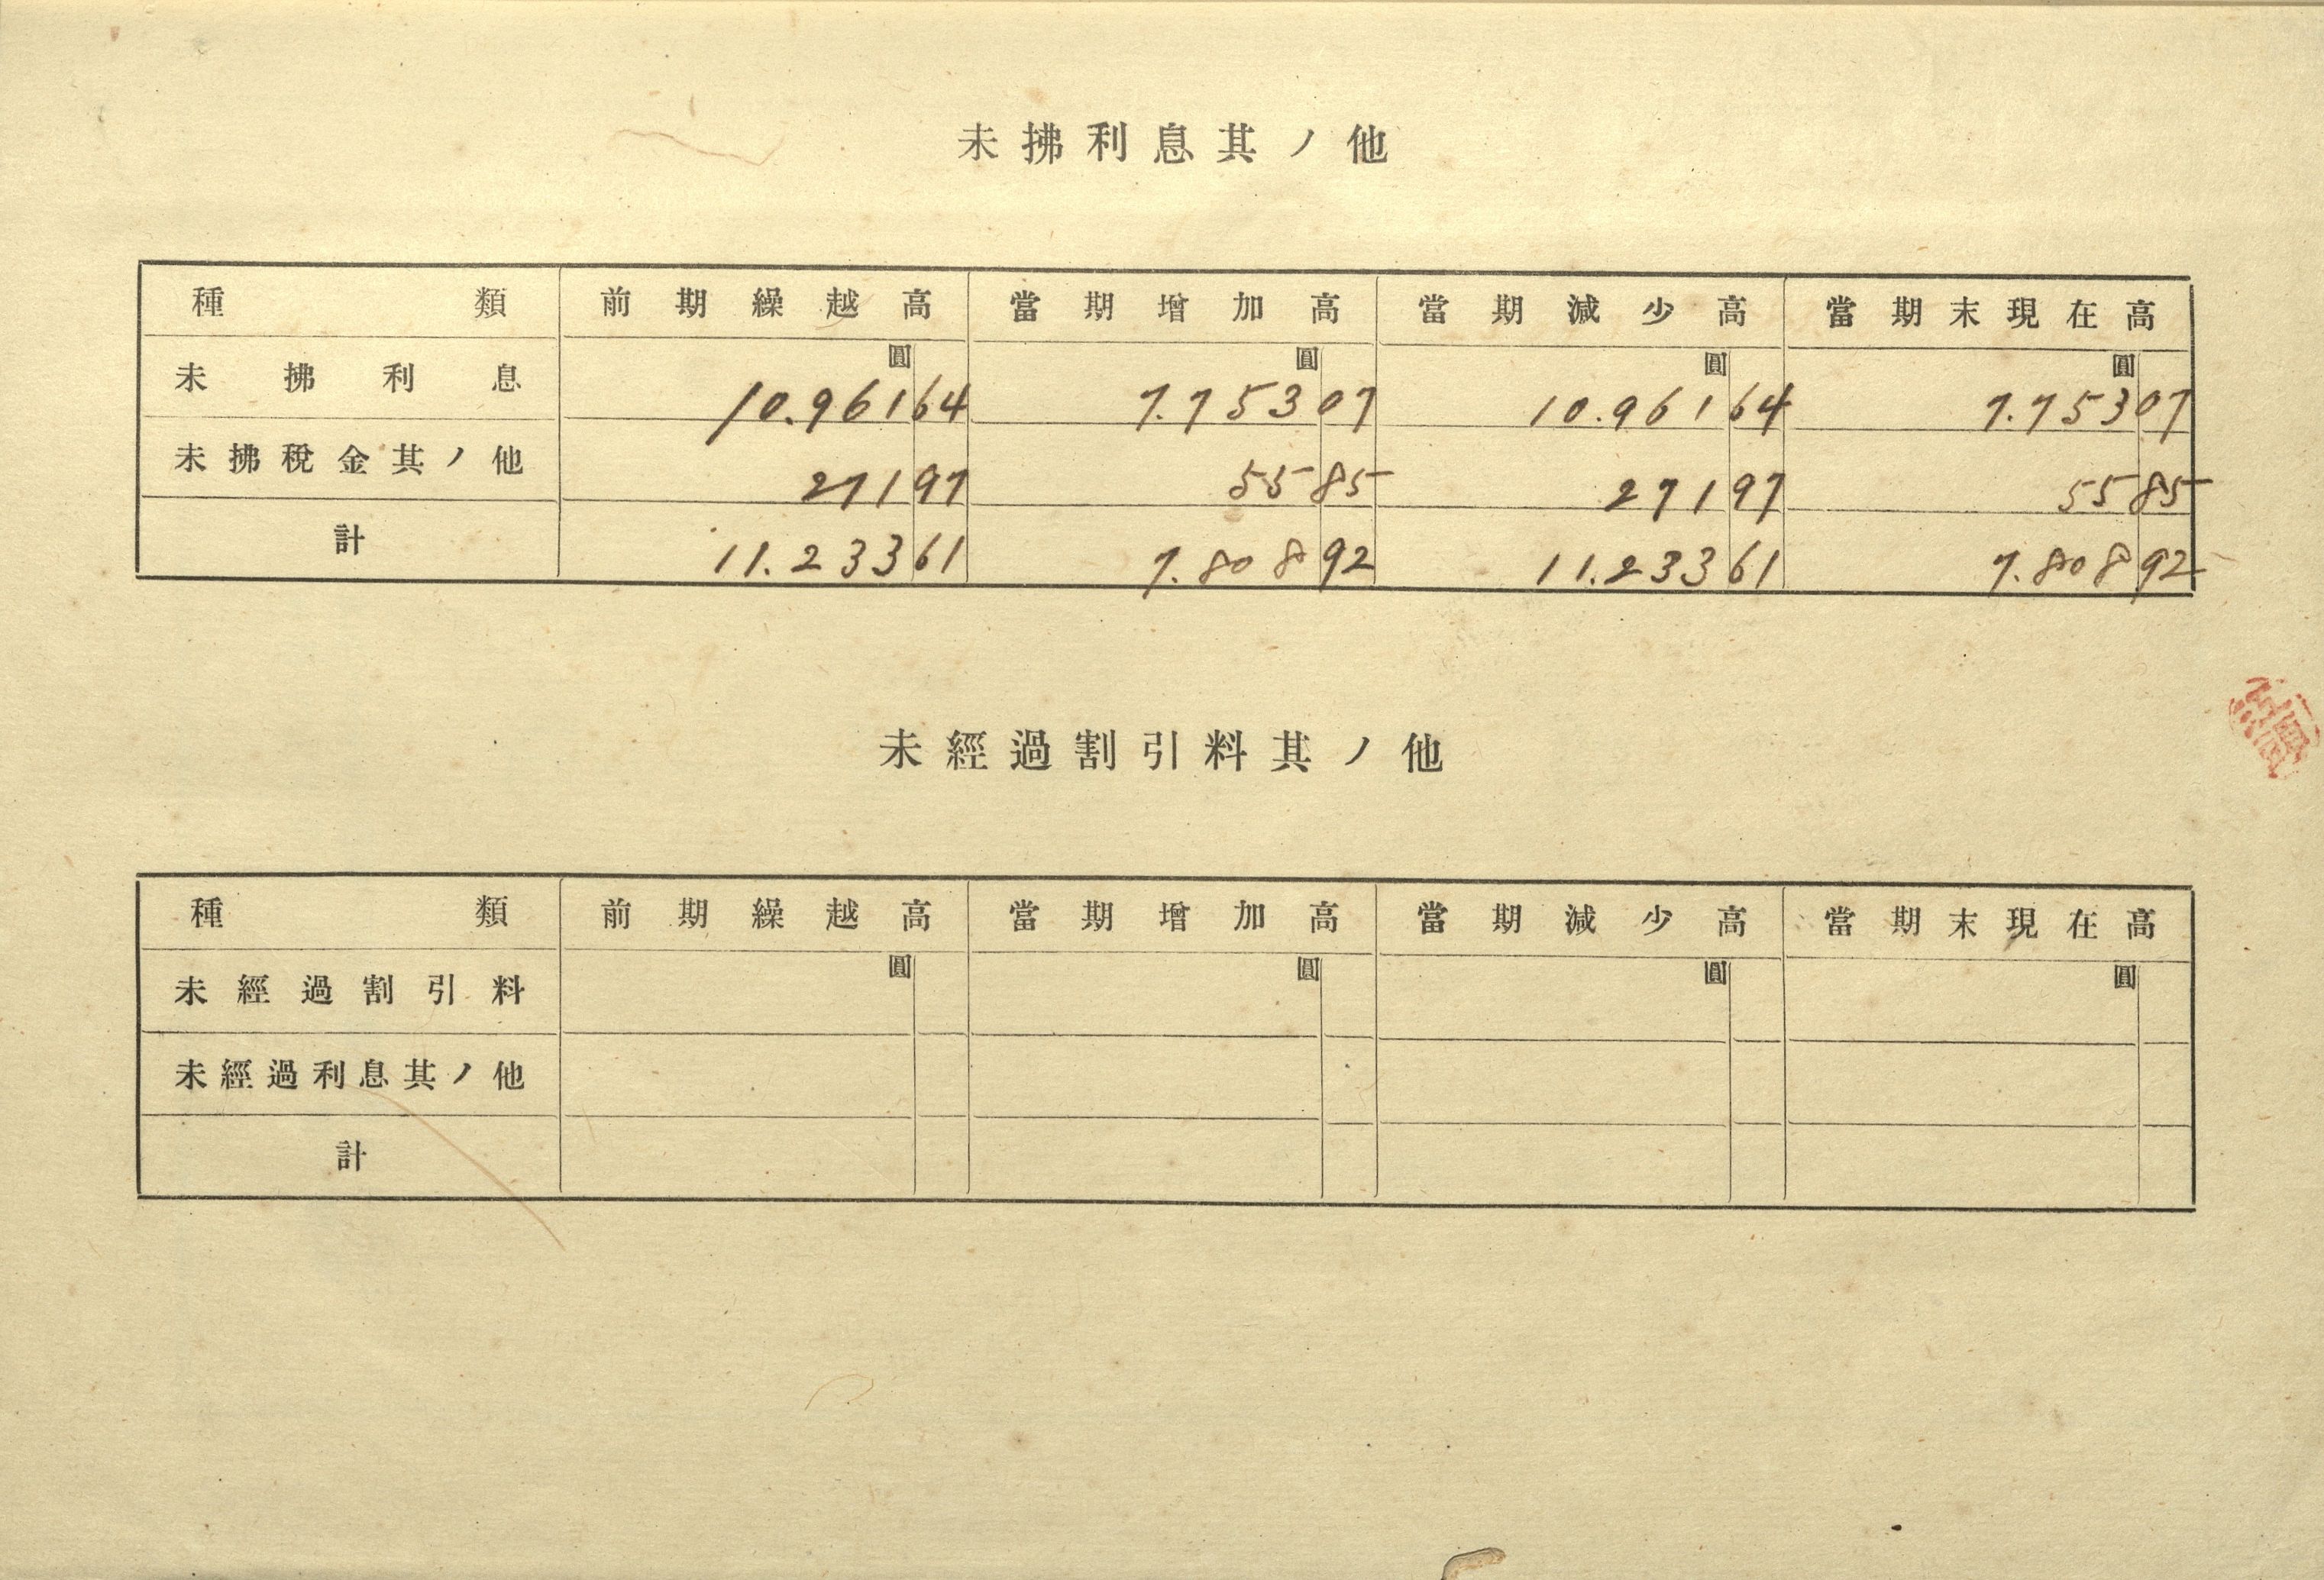 未拂利息其ノ他
種類 前期繰越高 當期增加高 當期減少高 當期末現在高
圓 圓 圓 圓
未拂利息 10.961 64 7.753 07 10.961 64 7.753 07
未拂稅金其ノ他 271 97 55 85 271 97 55 85
計 11.233 61 7.808 92 11.233 61 7.808 92
未經過割引料其ノ他
種類 前期繰越高 當期增加高 當期減少高 當期末現在高
圓 圓 圓 圓
未經過割引料
未經過利息其ノ他
計